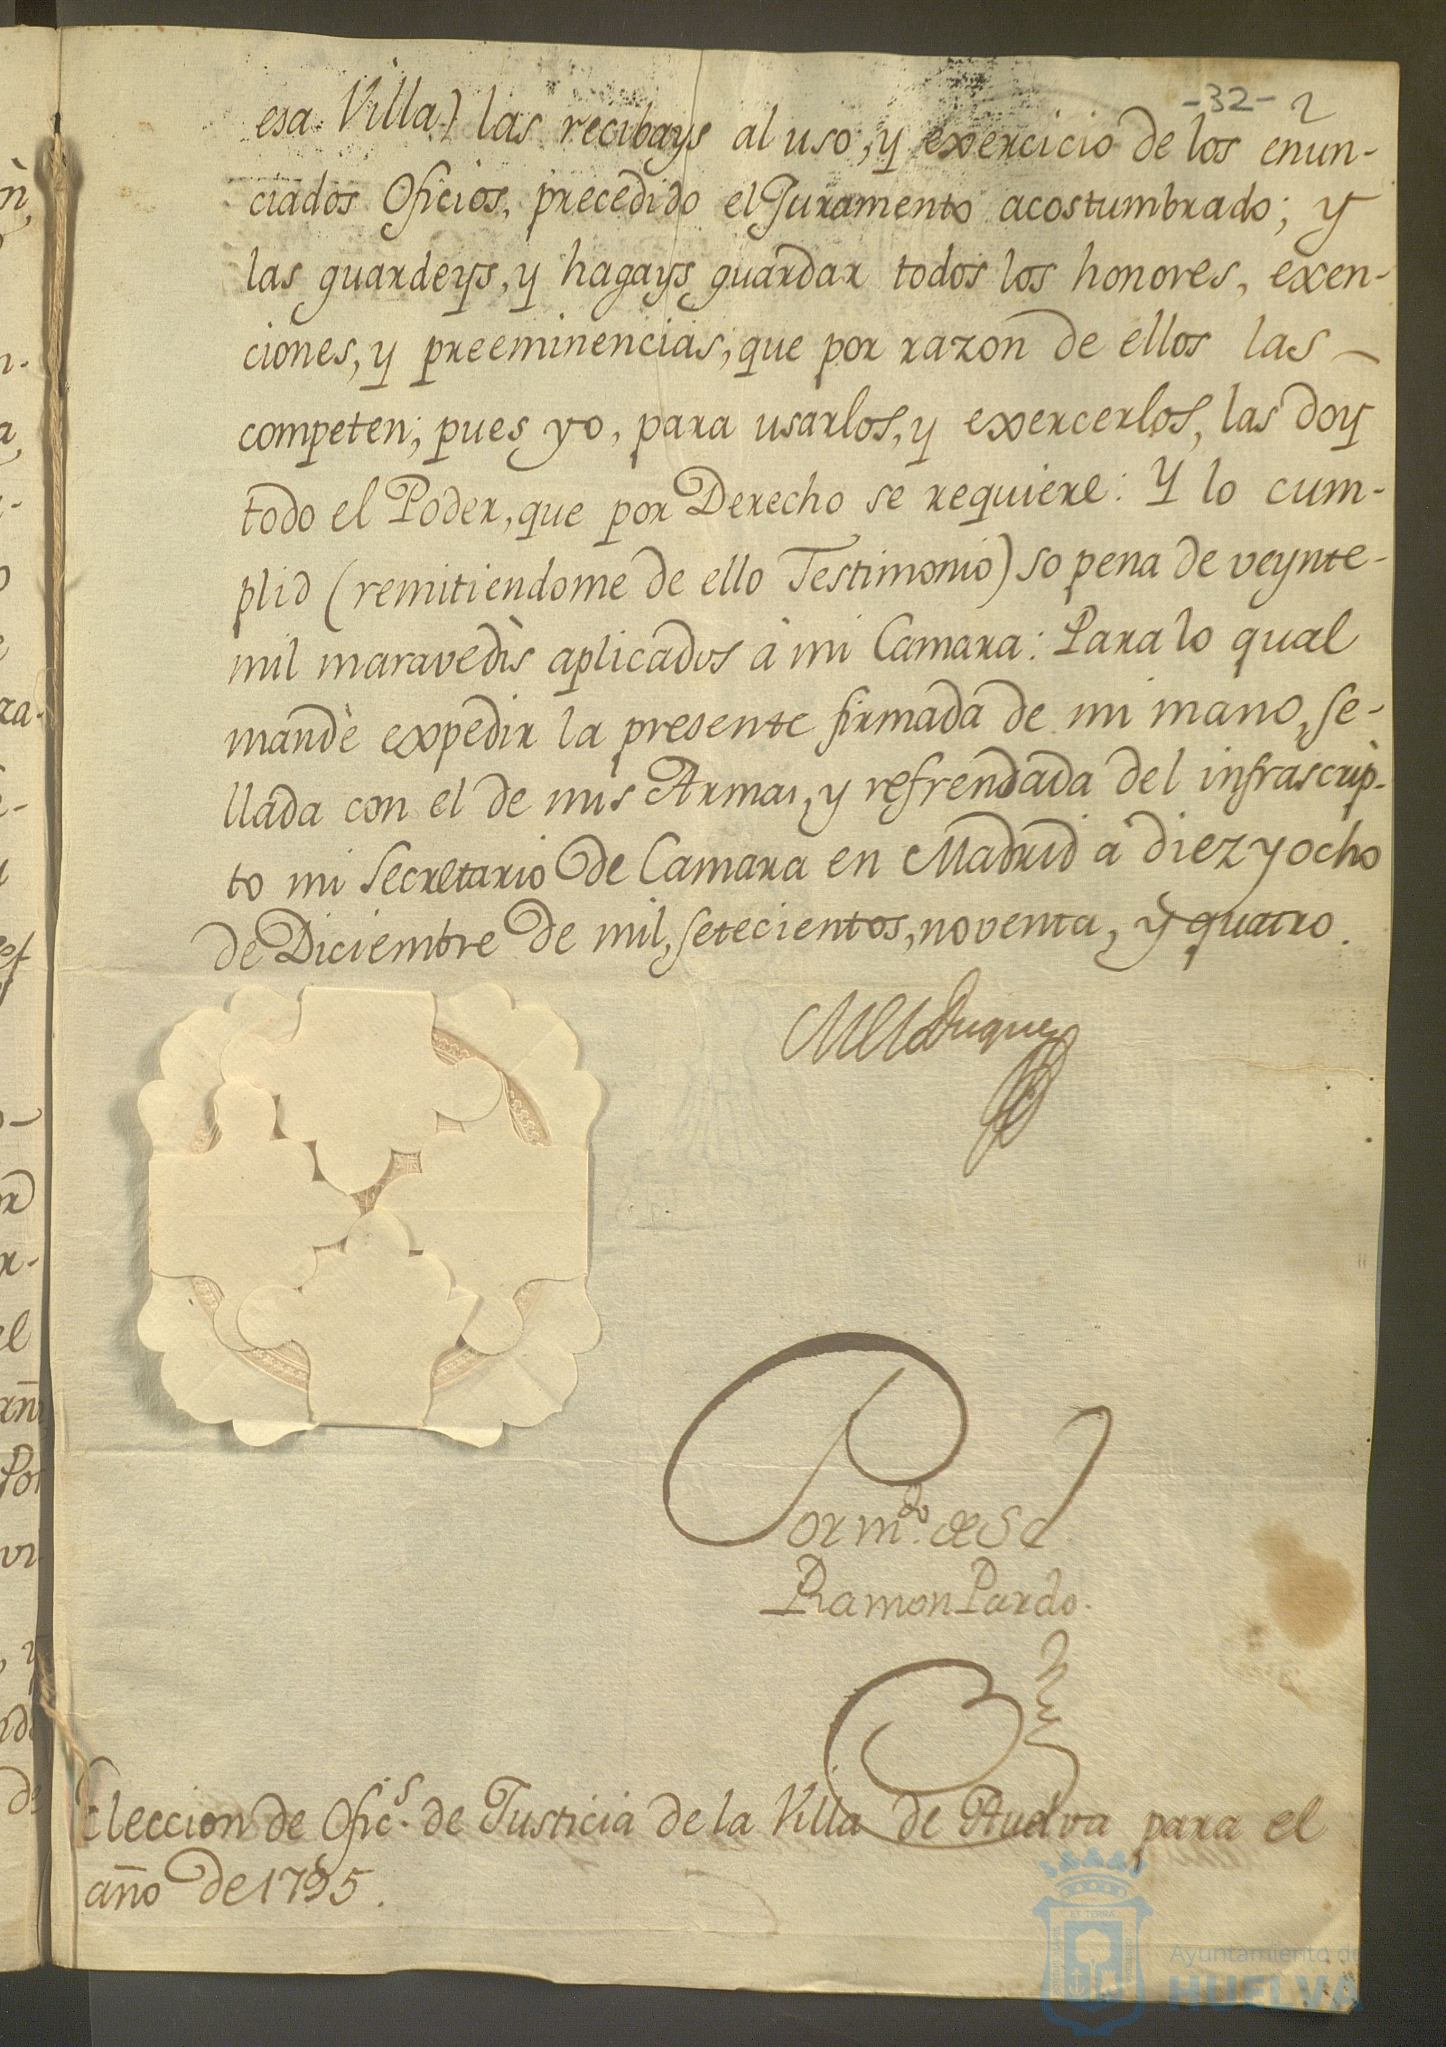 -32- 2
esa Villa) las recibays al uso, y exercicio de los enun-
ciados Oficios, precedido el Juramento acostumbrado; y
las guardeys, y hagays guardar todos los honores, exen-
ciones, y preeminencias, que por razon de ellos las
competen; pues yo, para usarlos, y exercerlos, las doy
todo el Poder, que por Derecho se requiere: Y lo cum-
plid (remitiendome de ello Testimonio) so pena de veynte-
mil maravedìs aplicados à mi Camara: Para lo qual
mandè expedir la presente firmada de mi mano, se-
llada con el de mis Armas, y refrendada del infrascrip-
to mi Secretario de Camara en Madrid à diez y ocho
de Diciembre de mil, setecientos, noventa, y quatro.
Duque
Por mdo. de S E
Ramon Pardo.
Eleccion de Ofics. de Justicia de la Villa de Huelva para el
año de 1795.
Ayuntamiento de
HUELVA